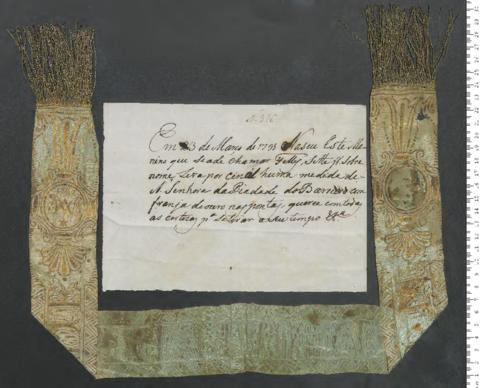 Em 23 de Março de 1793 Nasceu Este Me-
nino que se ade chamar Felis, Sette
nome, Leva por cinal huma medida de
N Senhora da Piedade do Barreiro com
franja de ouro nas pontas, quer em todas
as pª se tirar a seu tempo &ª